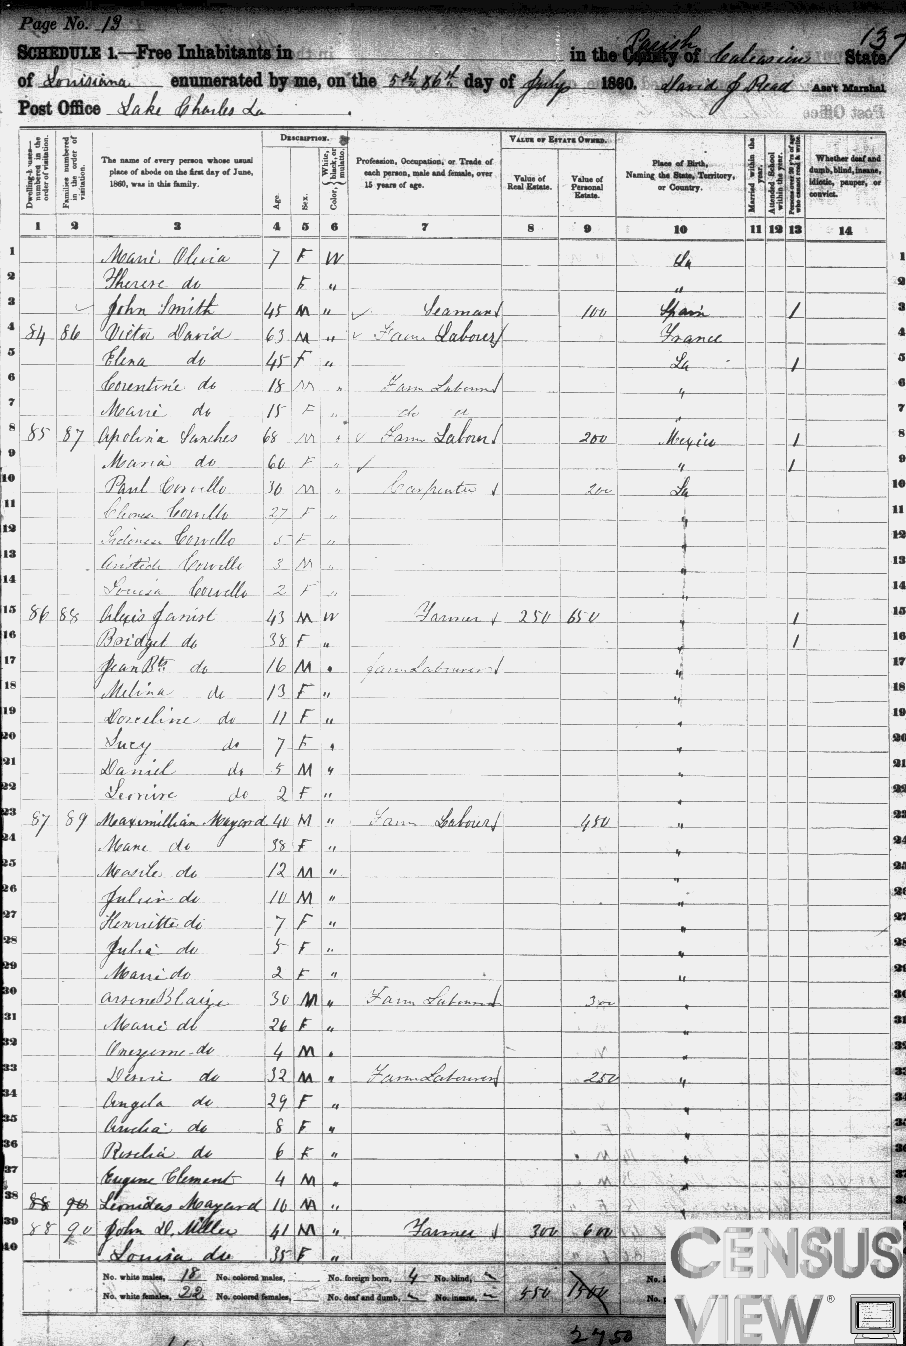 Page No. 13
137
SCHEDULE 1.—Free Inhabitants in in the County Parish of Calcasieu State
of Louisiana enumerated by me, on the 5th & 6th day of July 1860. David J Read Ass't Marshal
Post Office Lake Charles La
Dwelling-houses—numbered in the order of visitation. Families numbered in the order of visitation. The name of every person whose usual place of abode on the first day of June, 1860, was in this family. DESCRIPTION. Age. Sex. Color, White, black, or mulatto. Profession, Occupation, or Trade of each person, male and female, over 15 years of age. VALUE OF ESTATE OWNED. Value of Real Estate. Value of Personal Estate. Place of Birth, Naming the State, Territory, or Country. Married within the year. Attended School within the year. Persons over 20 y'rs of age who cannot read & write. Whether deaf and dumb, blind, insane, idiotic, pauper, or convict.
1 2 3 4 5 6 7 8 9 10 11 12 13 14
1 Marie Olivia 7 F W La 1
2 Therese do F " " 2
3 John Smith 45 M " Seaman 100 Spain 1 3
4 84 86 Victor David 63 M " Farm Labourer France 4
5 Elena do 45 F " La 1 5
6 Corentine do 18 M " Farm Labourer " 6
7 Marie do 15 F " do d " 7
8 85 87 Apolina Sanches 68 M " Farm Labourer 200 Mexico 1 8
9 Maria do 60 F " " 1 9
10 Paul Corvello 30 M " Carpenter 200 La 10
11 Corvello 27 F " " 11
12 Corvello 5 F " " 12
13 Aristide Corvello 3 M " " 13
14 Louisa Corvello 2 F " " 14
15 86 88 Alexis Janist 43 M W Farmer 250 650 " 1 15
16 Bridget do 38 F " " 1 16
17 Jean Bte do 16 M " Farm Labourer " 17
18 Melina do 13 F " " 18
19 Dorceline do 11 F " " 19
20 Lucy do 7 F " " 20
21 Daniel do 5 M " " 21
22 Leonise do 2 F " " 22
23 87 89 Maximillian Mayard 40 M " Farm Labourer 450 " 23
24 Marie do 38 F " " 24
25 Mosile do 12 M " " 25
26 Julien do 10 M " " 26
27 Henriette do 7 F " " 27
28 Julia do 5 F " " 28
29 Marie do 2 F " " 29
30 Arsene Blaize 30 M " Farm Labourer 300 " 30
31 Marie do 26 F " " 31
32 Onezeme do 4 M " " 32
33 Desire do 32 M " Farm Labourer 250 " 33
34 Angela do 29 F " " 34
35 Amelia do 8 F " " 35
36 Roselia do 6 F " " 36
37 Eugene Clement 4 M " " 37
38 88 90 Leonidas Mayard 16 M " " 38
39 88 90 John D. Miller 41 M " Farmer 300 600
40 Louisa do 35 F "
No. white males, 18 No. colored males, No. foreign born, 4 No. blind,
No. white females, 22 No. colored females, No. deaf and dumb, No. insane, 550 1500
2750
CENSUS
VIEW®